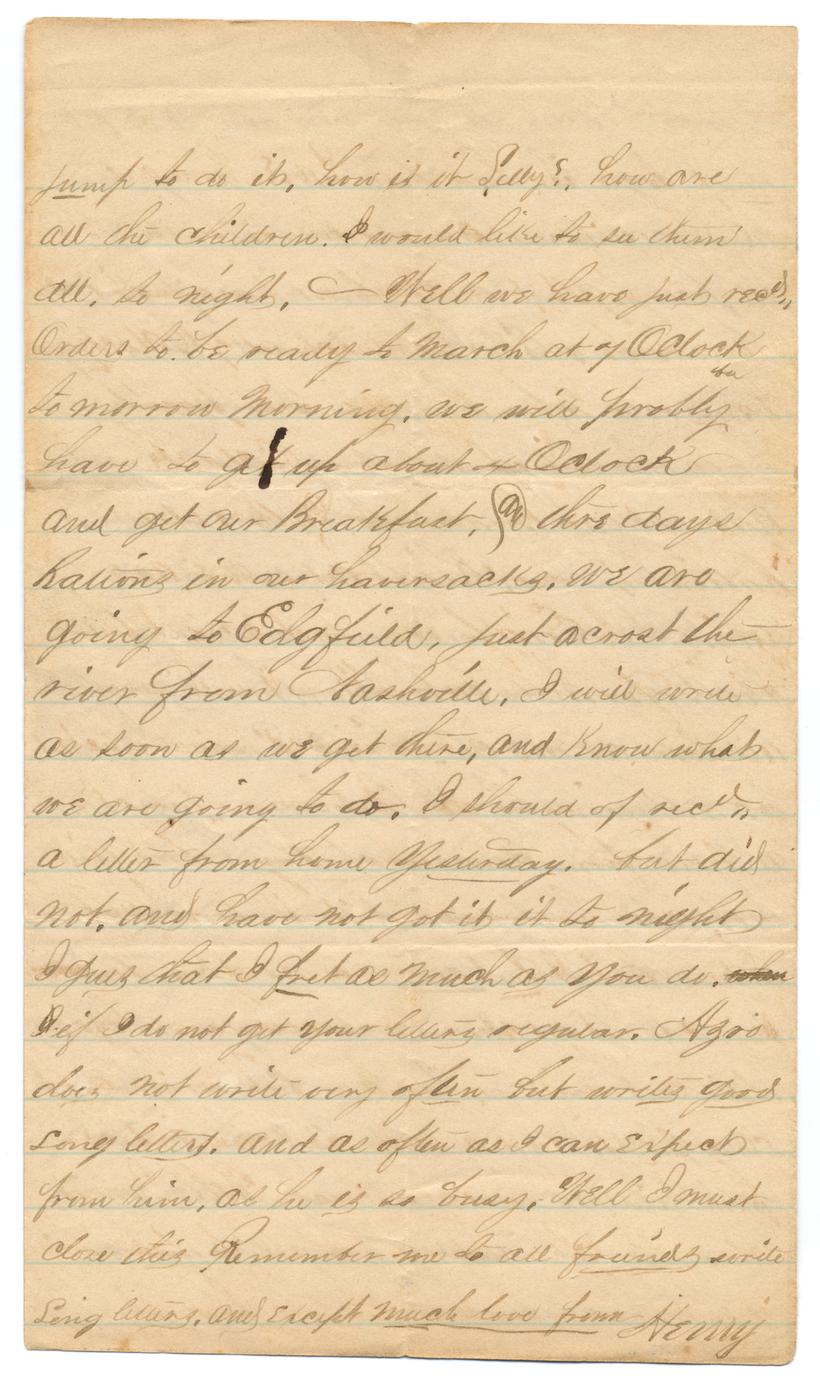 jump to do it, how is it Lilly?, how are
all the children. I would like to see them
all, to night, — Well we have just recd,,
Orders to be ready to March at 7 Oclock
to morrow Morning, we will probbly
ba
have to get up about 4 Oclock
and get our Breakfast, an thre days
Rations in our haversacks, we are
going to Edgfield, just acrost the
river from Nashville, I will write
as soon as we get there, and know what
we are going to do. I should of recd,,
a letter from home Yesterday. but did
not, and have not got it it to night
I gues that I fret as much as you do. when
I if I do not get your letters regular. Azro
does not write very often but writes good
Long letters. and as often as I can expect
from him, as he is so busy. Well I must
close this Remember me to all friends write
Long letters, and except much love from Henry